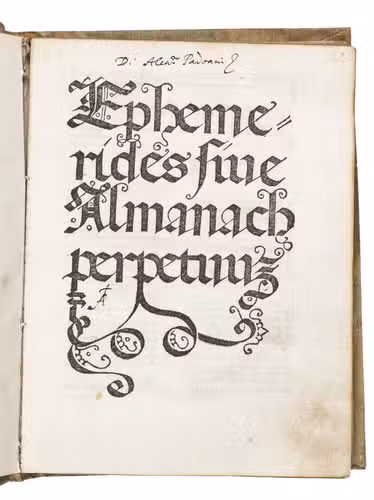 Di Padoani
Epheme=
rides ſiue
Almanach
perpetuuz